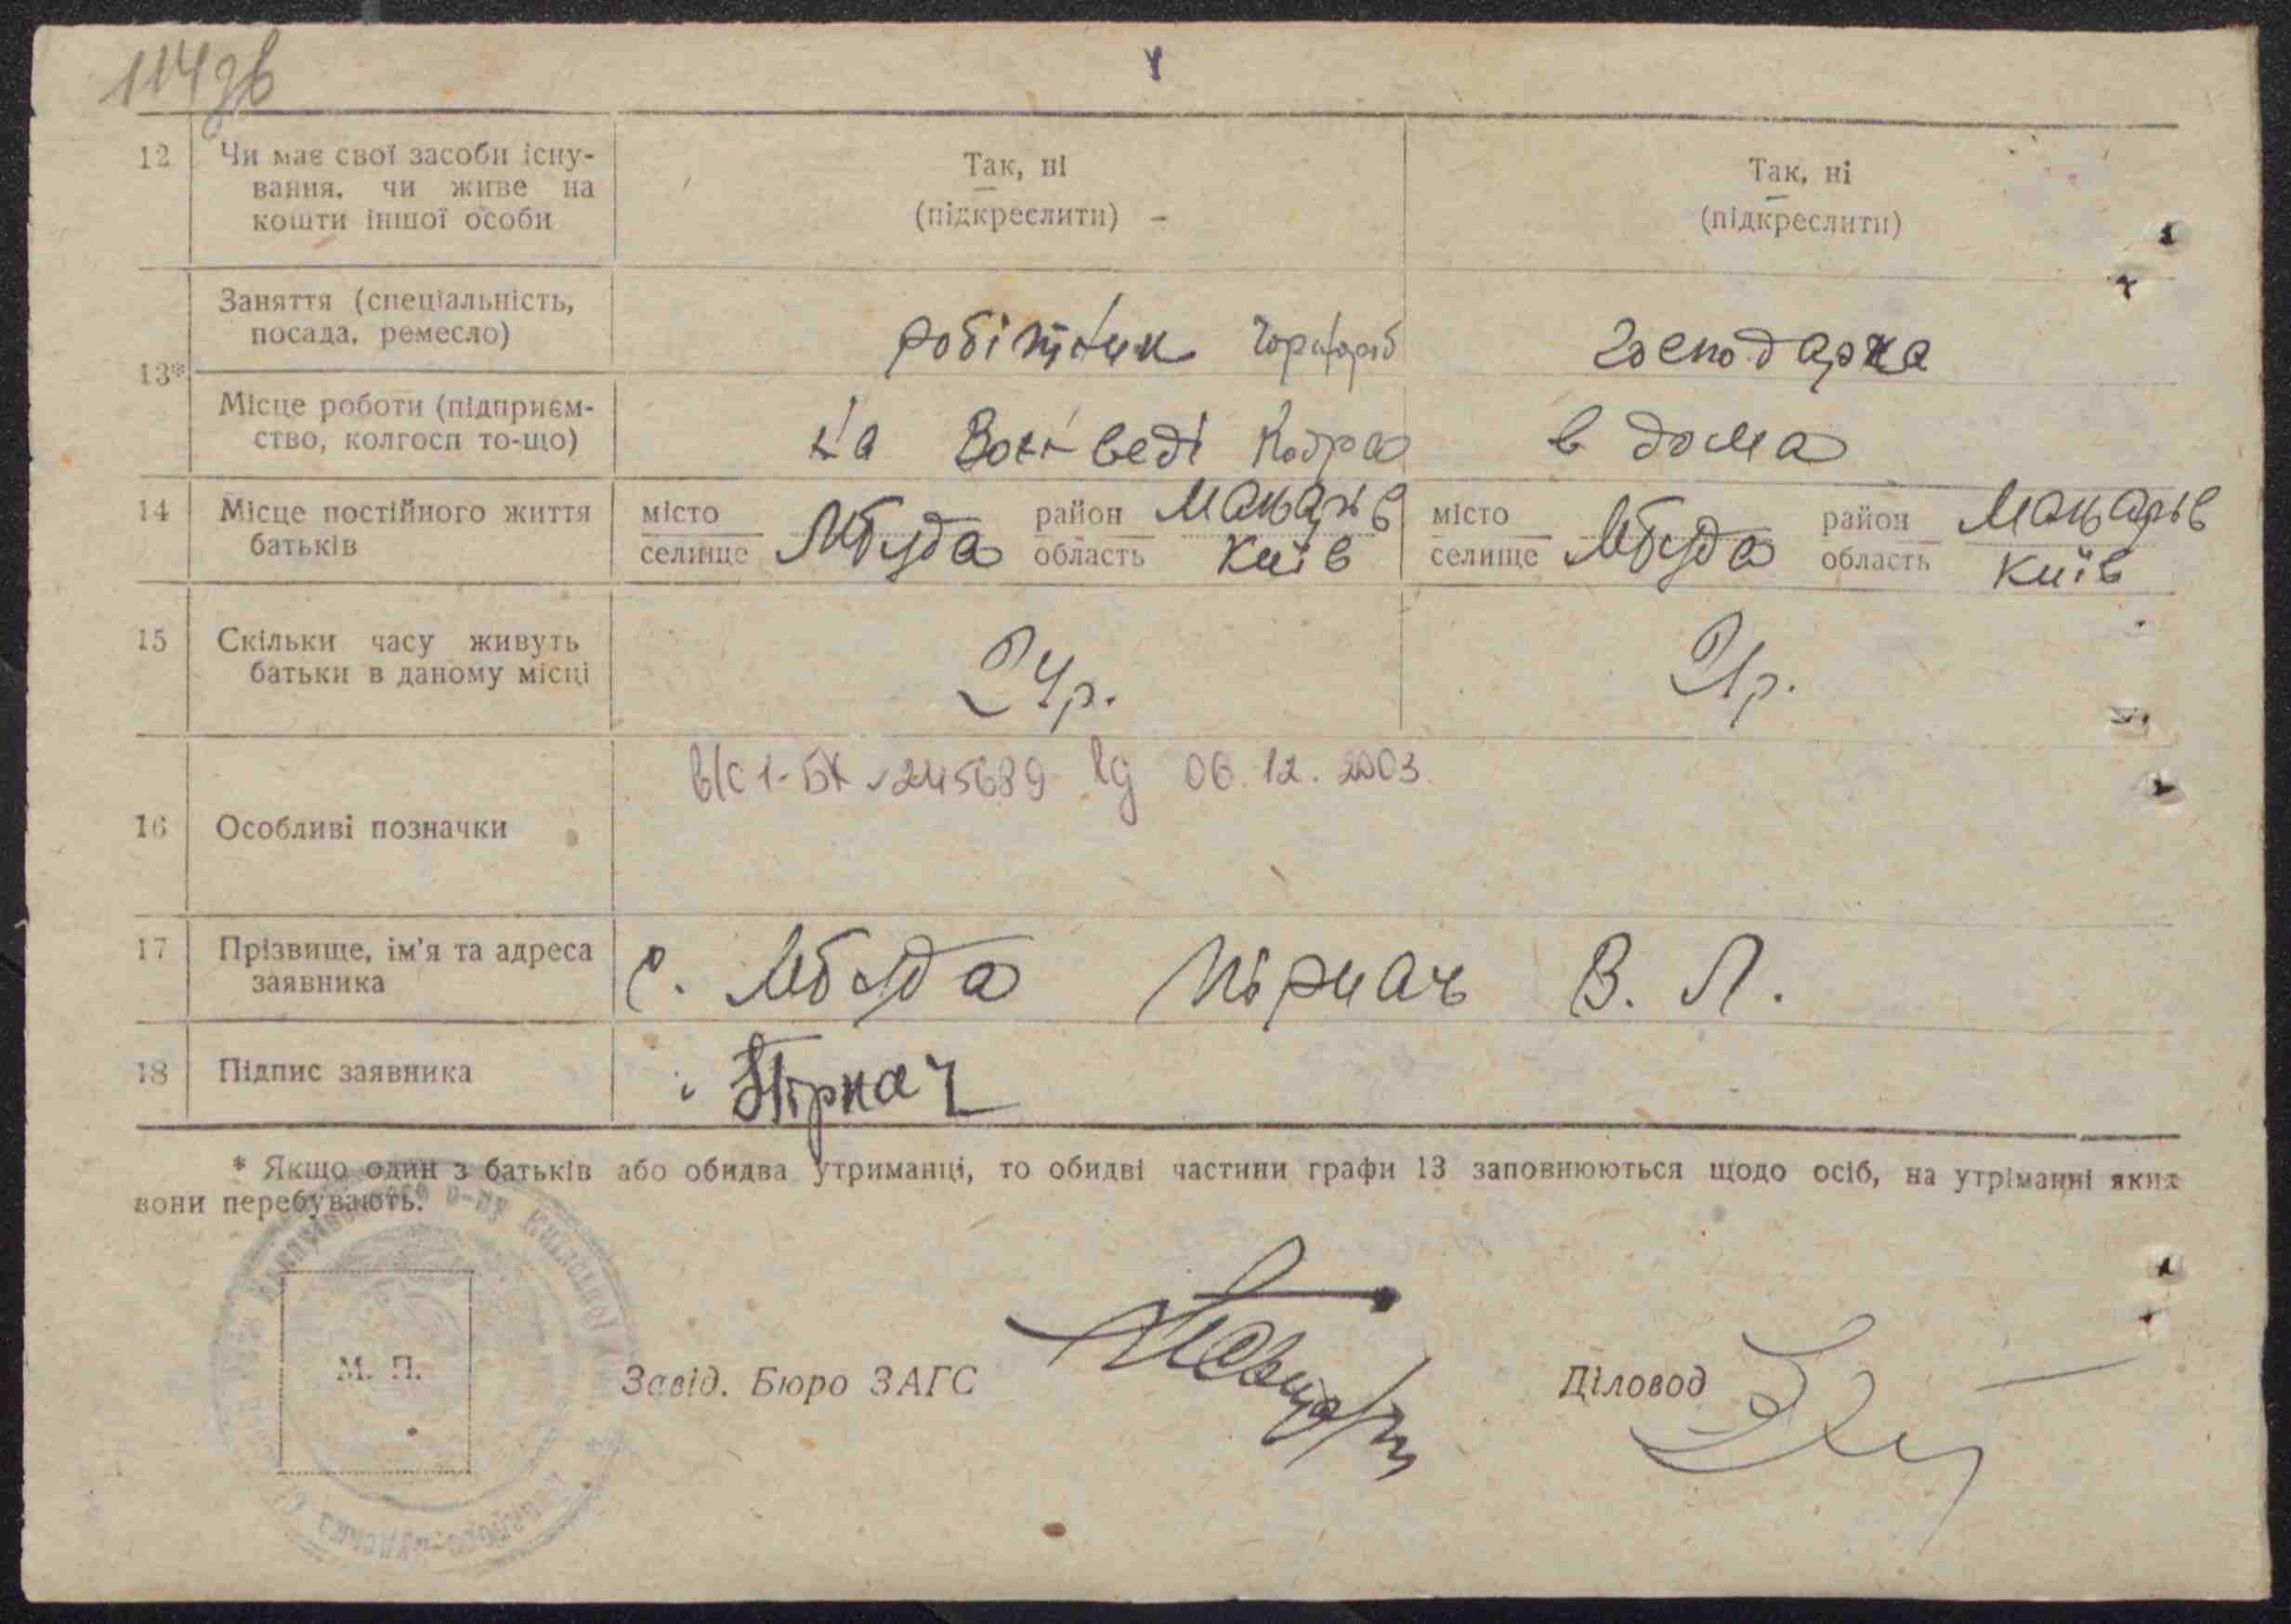 114зв
12 Чи має свої засоби існу-
вання, чи живе на
кошти іншої особи
Так, ні
(підкреслити)
Так, ні
(підкреслити)
13*
Заняття (спеціальність,
посада, ремесло)
робітник чорнороб
господарка
Місце роботи (підприєм-
ство, колгосп то-що)
на Кодра
в дома
14 Місце постійного життя
батьків
місто
селище
район Макарів
область Київ
місто
селище
район Макарів
область Київ
15 Скільки часу живуть
батьки в даному місці
24р.
21р.
16 Особливі позначки
в/с 1-БК 245689 від 06.12.2003
17 Прізвище, ім'я та адреса
заявника
с. Пірнач В. Л.
18 Підпис заявника
Пірнач
* Якщо один з батьків або обидва утриманці, то обидві частини графи 13 заповнюються щодо осіб, на утріманні яких
вони перебувають.
М. П.
Завід. Бюро ЗАГС
Діловод